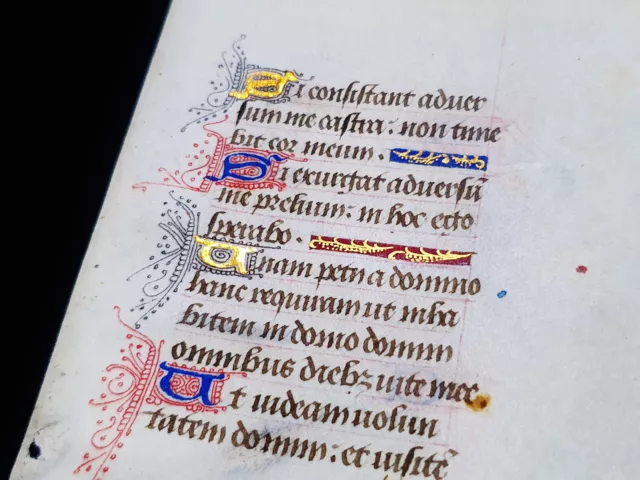 Si consistant aduer
sum me castra : non time
bit cor meum .
Si exurgat aduersū
me prelium : in hoc ego
sperabo .
Unam petii a domino
hanc requiram ut inha
bitem in domo domini
omnibus diebz uite mee
Ut uideam uolun
tatem domini : et uisitē